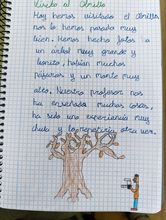 Visita al Olmillo
Hoy hemos visitado el olmillo
nos lo hemos pasado muy
bien. Hemos hecho fotos a
un árbol muy grande y
bonito, habían muchos
pájaros y un monte muy
alto. Nuestro profesor nos
ha enseñado muchas cosas,
ha sido una experiencia muy
chula y la repetiría otra vez.